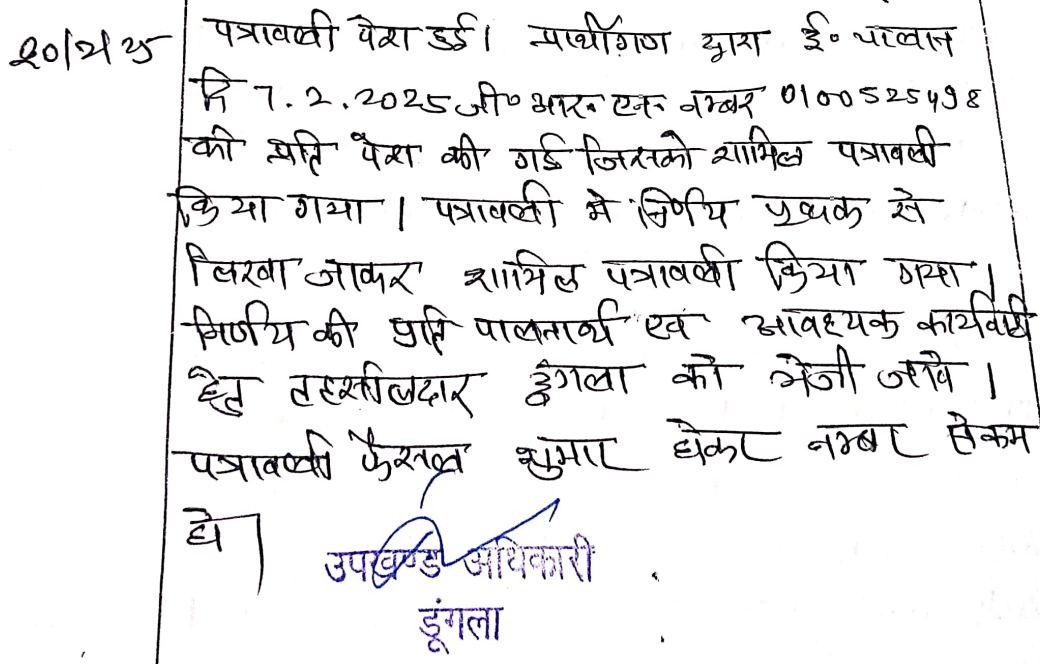 20/2/25 पत्रावली पेश हुई। प्रार्थीगण द्वारा ई॰ चालान
दि 7.2.2025 जी॰ आर॰ एन॰ नम्बर 0100525498
की प्रति पेश की गई जिसको शामिल पत्रावली
किया गया। पत्रावली मे निर्णय पृथक से
लिखा जाकर शामिल पत्रावली किया गया।
निर्णय की प्रति पालनार्थ एवं आवश्यक कार्यवाही
हेतु तहसीलदार डूंगला को भेजी जावे।
पत्रावली फैसल शुमार होकर नम्बर से कम
हो।
उपखण्ड अधिकारी
डूंगला